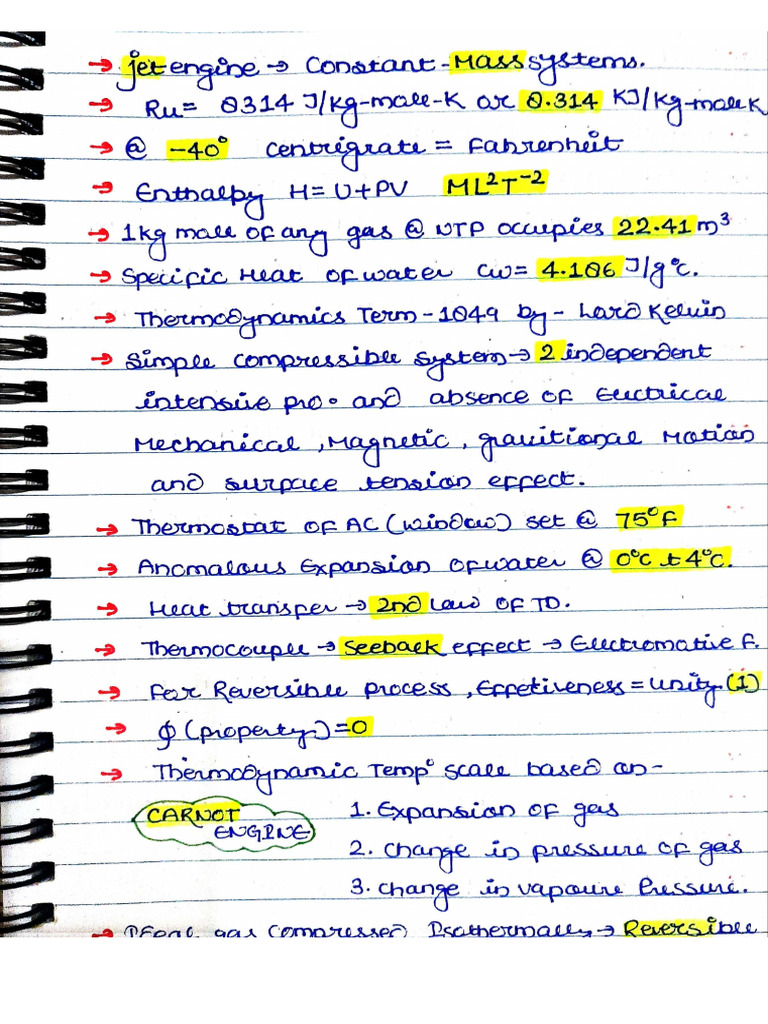 → jet engine → Constant-Mass systems.
→ Ru = 8314 J/kg-mole-K or 8.314 KJ/kg-mole K
→ @ -40° Centrigrate = Fahrenheit
→ Enthalpy H = U+PV ML²T⁻²
→ 1kg mole of any gas @ NTP occupies 22.41 m³
→ Specific Heat of water Cw= 4.186 J/g°c.
→ Thermodynamics Term - 1849 by - Lord Kelvin
→ Simple compressible system → 2 independent
intensive pro. and absence of Electrical
Mechanical, Magnetic, gravitional Motion
and surface tension effect.
→ Thermostat of AC (window) set @ 75°F
→ Anomalous Expansion of water @ 0°C t 4°C.
→ Heat transfer → 2nd Law of TD.
→ Thermocouple → Seeback effect → Electromotive F.
→ For Reversible process, Effetiveness = Unity (1)
→ ∮ (property) = 0
→ Thermodynamic Temp° scale based on -
CARNOT ENGINE
1. Expansion of gas
2. Change in pressure of gas
3. change in vapoure Pressure.
→ Ideal gas compressed Isothermally → Reversible